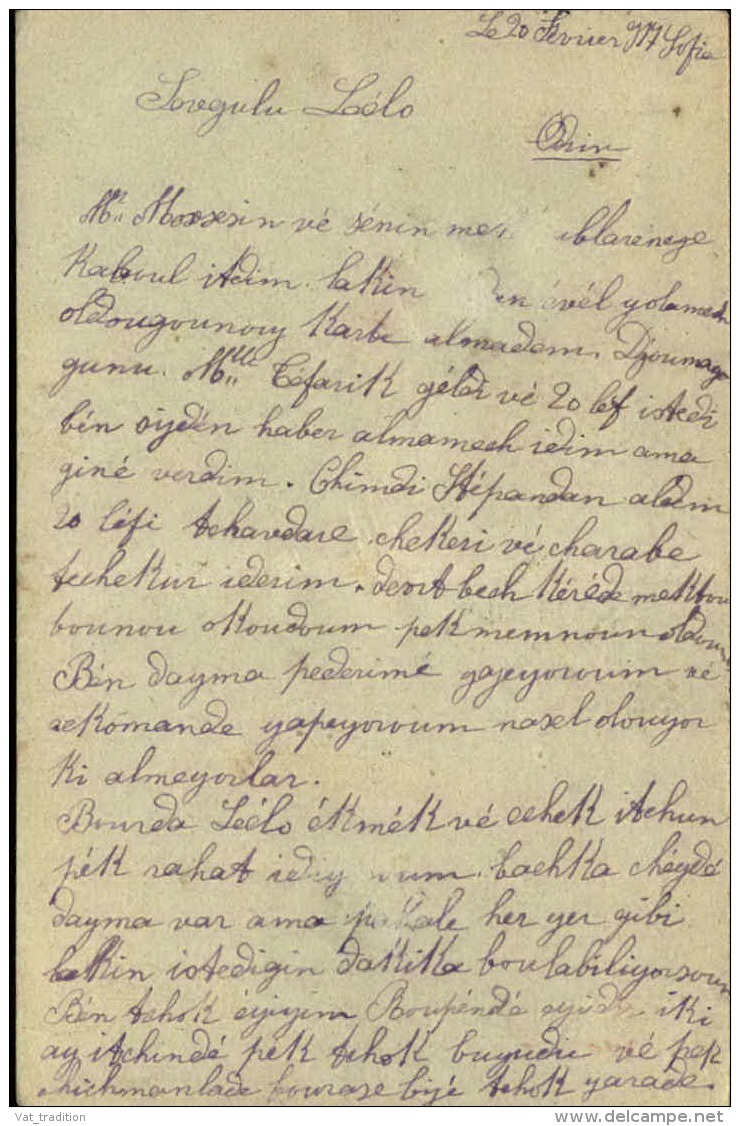 Le 20 Fevrier 917 Sofia
Sevgulu Lélo
Odrin
Mr Mossesin vé sénin mek ublarenege
Kaboul itdim lakin den évél yolamech
oldougounouy Karte almadem. Djoumage
gunu. Mlle Téfarik géldi vé 20 léf istedi
bén siydén haber almamech idim ama
giné verdim. Chimdi Stépandan aldem
20 léfi tchavdare chekeri vé charabe
techekur iderim. deort bech Kéréde mektou
bounou okoudoum pek memnoun oldoum
Bén dayma pederimé yazeyoroum vé
rekomande yapeyoroum nasel olouyor
ki almeyorlar.
Bourda Lélo ékmék vé etchek itchun
pék rahat idiy oum. bachka chéydé
dayma var ama pahale her yer gibi
lakin istedigin dakika boulabiliyorsoun
Bén tchok éyiyim Roupéndé eyidir iki
ay itchindé pék tchok buyudu vé pek
chichmanlade bourase bizé tchok yarade.
Vat_tradition
www.delcampe.net